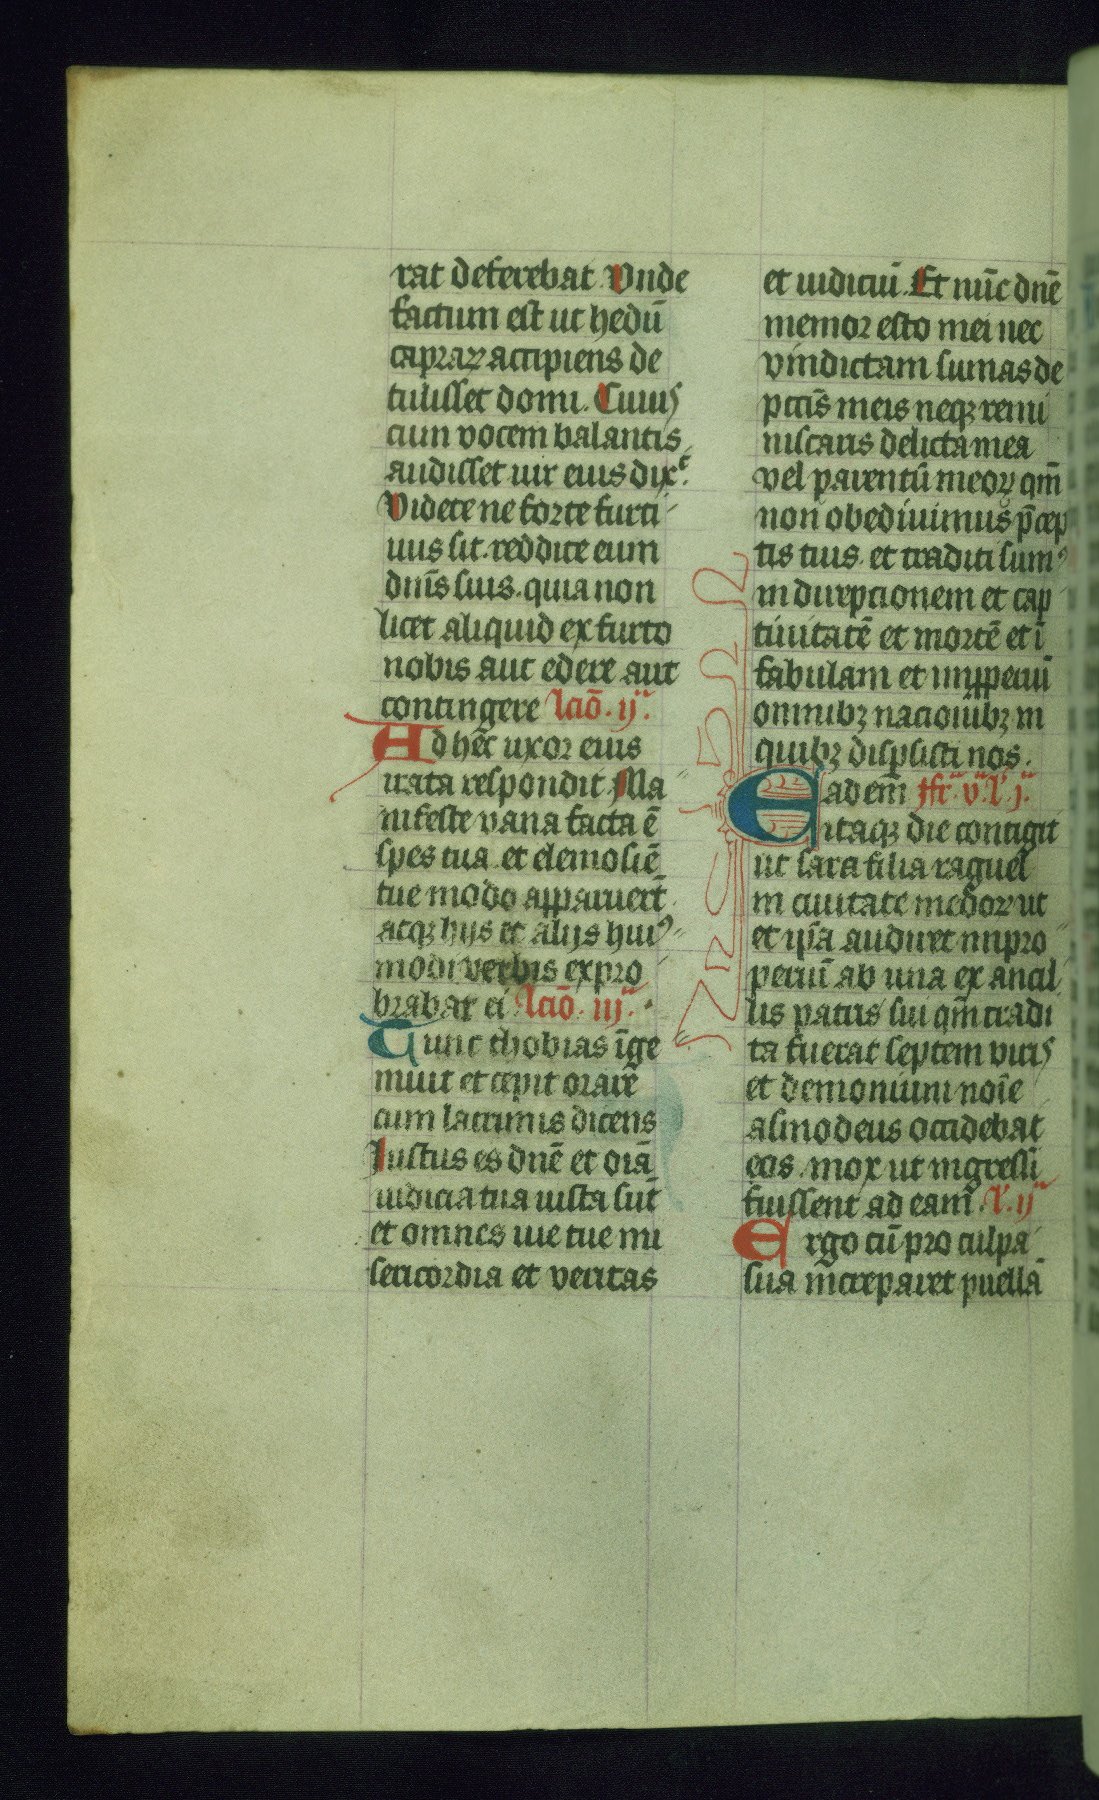 rat deferebat. Vnde
factum est ut hedū
capraꝝ accipiens de
tulisset domi. Cuiuꝰ
cum vocem balantis
audisset uir eius dixᵗ.
Videte ne forte furti
uus sit. reddite eum
dnīs suis. quia non
licet aliquid ex furto
nobis aut edere aut
contingere lcīo. ij.ᵃ
Ad hec uxor eius
irata respondit. Ma
nifeste vana facta ē
spes tua. et elemosiē
tue modo apparuerᷠt
atqꝫ hijs et alijs huiꝰ
modi verbis expro
brabat ei lcīo. iij.ᵃ
Tunc thobias īge
muit et cepit orare
cum lacrimis dicens
Iustus es dnē et oīa
iudicia tua iusta sūt
et omnes uie tue mi
sericordia et veritas
et iudiciū. Et nūc dnē
memor esto mei nec
vindictam sumas de
pctīs meis neqꝫ remi
niscaris delicta mea
vel parentū meoꝝ qm̄
non obediuimus p̄cep
tis tuis. et traditi sumꝰ
in direpcionem et cap
tiuitatē et mortē et ī
fabulam et imꝓperiū
omnibꝫ nacionibꝫ in
quibꝫ dispsisti nos.
Eadem fr̄.ᵃ v.ᵃ l' j.ᵃ
itaqꝫ die contigit
ut sara filia raguel
in ciuitate medoꝝ ut
et ipsa audiret inpro
periū ab una ex ancil
lis patris sui qm̄ tradi
ta fuerat septem uiris
et demonium noīe
asmodeus occidebat
eos. mox ut ingressi
fuissent ad eam. l'. ijᵃ
Ergo cū pro culpa
sua increparet puellā